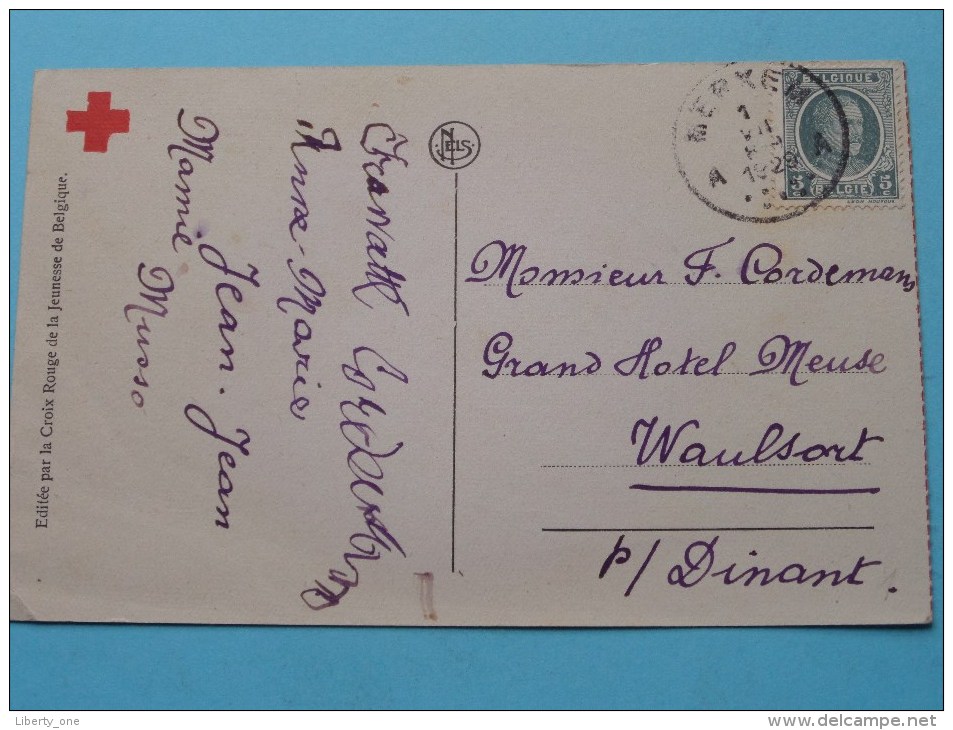 Editée par la Croix Rouge de la Jeunesse de Belgique.
Anne-Marie
Jean. Jean
Mamie Musso
NELS
MERXEM
1
1928
A A
BELGIQUE
5c 5c
BELGIË
Monsieur F. Cordemans
Grand Hotel Meuse
Waulsort
p/ Dinant.
Liberty_one
www.delcampe.net